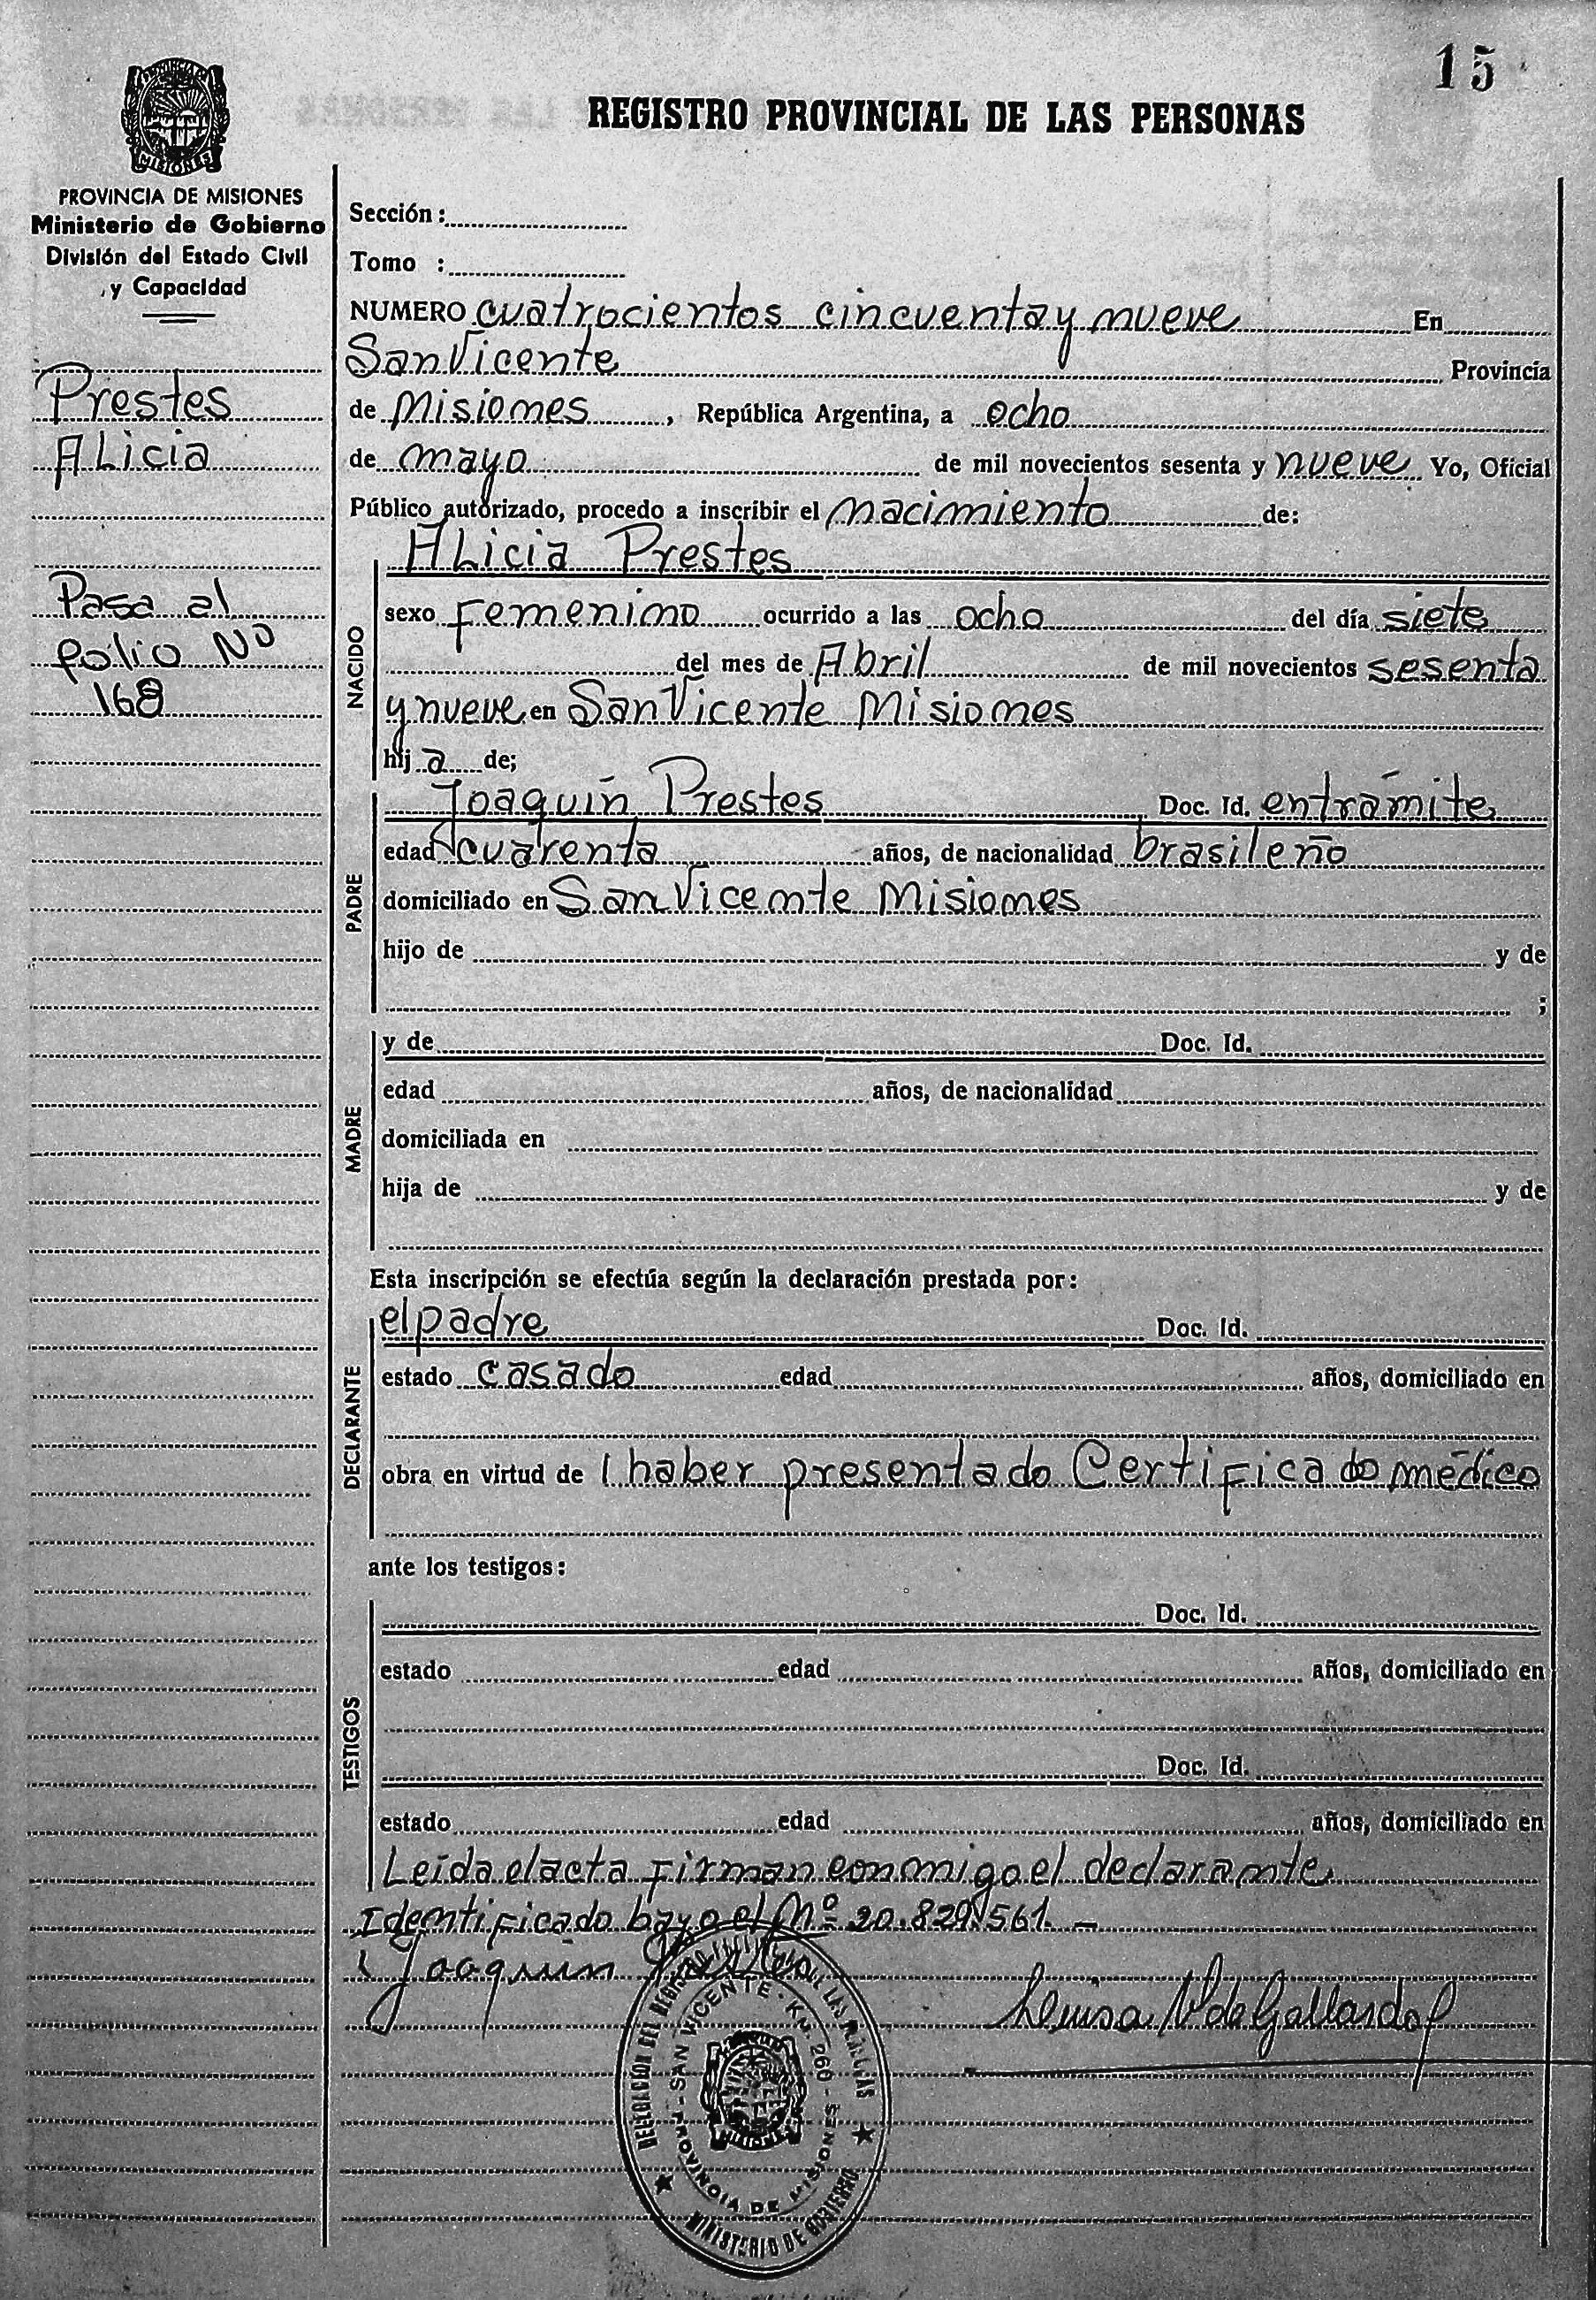 15
REGISTRO PROVINCIAL DE LAS PERSONAS
MISIONES
PROVINCIA DE MISIONES
Ministerio de Gobierno
División del Estado Civil
y Capacidad
Prestes
Alicia
Pasa al
folio No
168
Sección:
Tomo :
NUMERO cuatrocientos cincuenta y nueve En
San Vicente Provincia
de Misiones, República Argentina, a ocho
de mayo de mil novecientos sesenta y nueve Yo, Oficial
Público autorizado, procedo a inscribir el nacimiento de:
NACIDO
Alicia Prestes
sexo Femenino ocurrido a las ocho del día siete
del mes de Abril de mil novecientos sesenta
y nueve en San Vicente Misiones
hija de;
PADRE
Joaquín Prestes Doc. Id. en trámite
edad cuarenta años, de nacionalidad brasileño
domiciliado en San Vicente Misiones
hijo de y de
;
MADRE
y de Doc. Id.
edad años, de nacionalidad
domiciliada en
hija de y de
Esta inscripción se efectúa según la declaración prestada por:
DECLARANTE
el padre Doc. Id.
estado casado edad años, domiciliado en
obra en virtud de haber presentado Certificado médico
ante los testigos:
TESTIGOS
Doc. Id.
estado edad años, domiciliado en
Doc. Id.
estado edad años, domiciliado en
Leída el acta firman conmigo el declarante
Identificado bajo el Nº 20.829.561.-
Joaquin Prestes
Luisa N de Gallardo
DELEGACION DEL REGISTRO PROVINCIAL DE LAS PERSONAS
SAN VICENTE - KM. 260 -
PROVINCIA DE MISIONES
MINISTERIO DE GOBIERNO